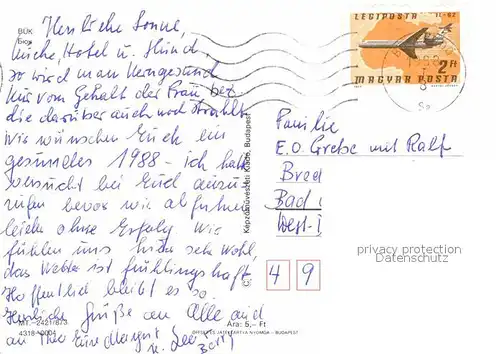 BÜK
Бюк
Herrliche Sonne,
Küche, Hotel u. Hund,
so wird man kerngesund
Nur vom Gehalt der Frau bez.
die darüber auch noch strahlt.
Wir wünschen Euch ein
gesundes 1988 - ich hatte
versucht bei Euch anzu-
rufen bevor wir abfuhren
leider ohne Erfolg. Wir
fühlen uns hier sehr wohl,
das Wetter ist frühlingshaft.
Hoffentlich bleibt es so.
Herzliche Grüße an Alle auch
an Eure
u.
MT.-2421/873
4318/0004
Ára: 5,- Ft
OFFSET ÉS JÁTÉKKÁRTYA NYOMDA - BUDAPEST
Képzőművészeti Kiadó, Budapest
LÉGIPOSTA IL-62
2 Ft
MAGYAR POSTA
Familie
E.O. Gretse mit Ralf
Bad
West-
4 9
privacy protection
Datenschutz